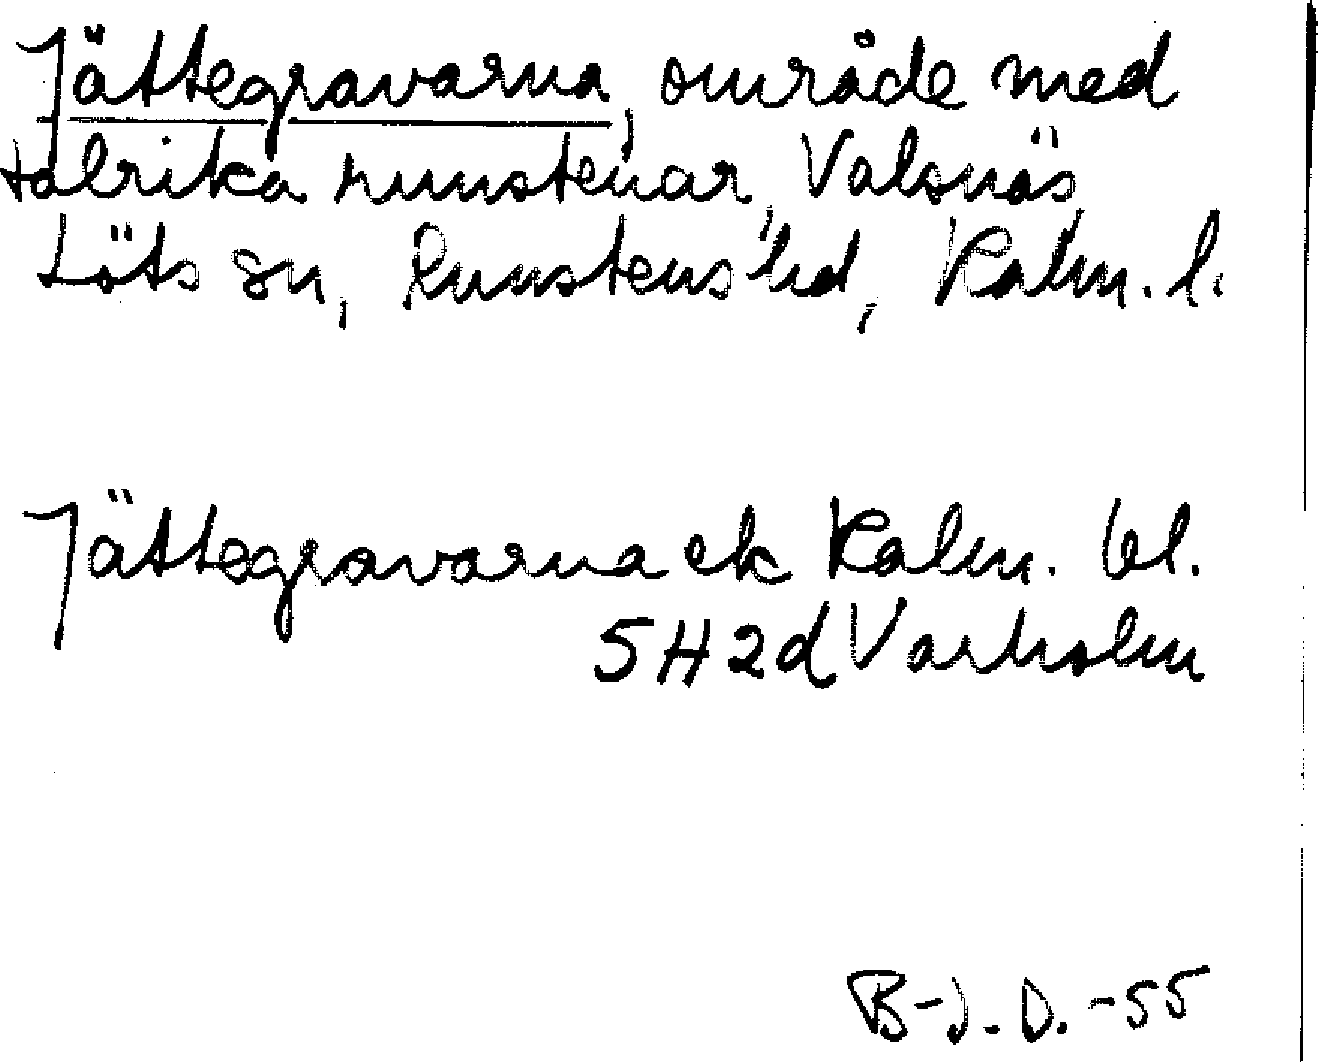 Jättegravarna, område med
talrika runstenar, Valsnäs
Löts sn, Runstens hd, Kalm. l.
Jättegravarna ek Kalm. bl.
5H2d Varholm
B-J. D. -55